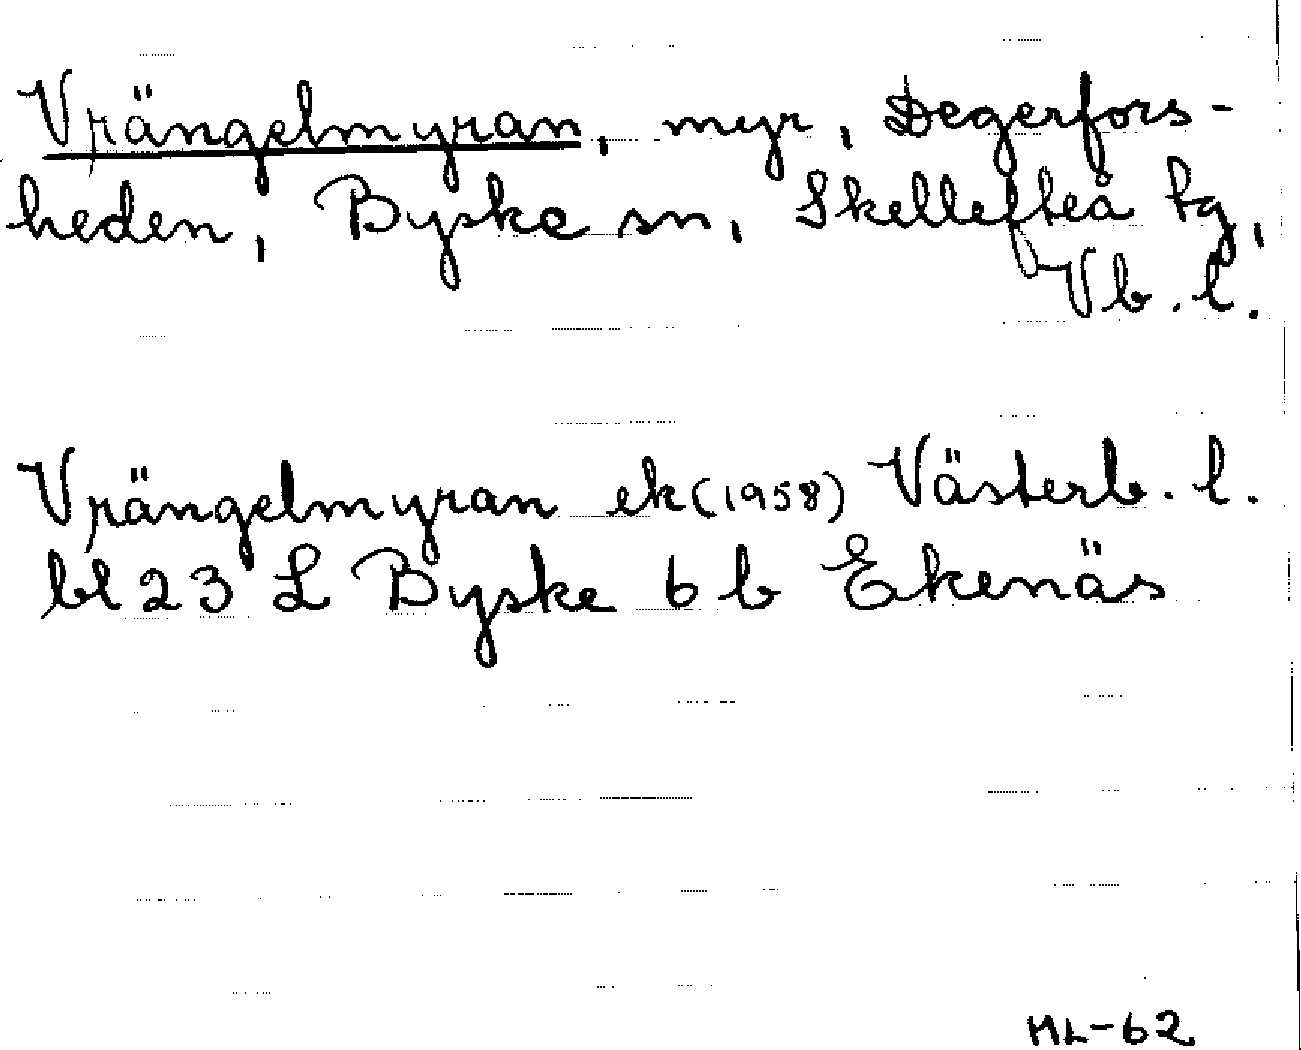 Vrängelmyran, myr, Degerfors-
heden, Byske sn, Skellefteå tg,
Vb. l.
Vrängelmyran ek (1958) Västerb. l.
bl 23 L Byske 6 b Ekenäs
ML-62